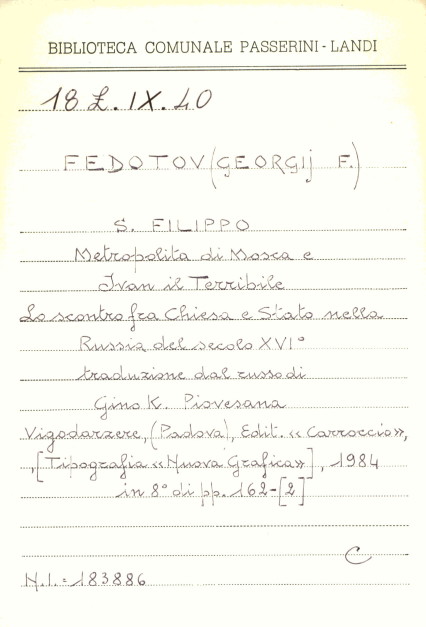 BIBLIOTECA COMUNALE PASSERINI - LANDI
18 L. IX. 40
FEDOTOV (GEORGIJ F.)
S. FILIPPO
Metropolita di Mosca e
Ivan il Terribile
Lo scontro fra Chiesa e Stato nella
Russia del secolo XVI°
traduzione dal russo di
Gino K. Piovesana
Vigodarzere, (Padova), Edit. «Carroccio»,
, [Tipografia «Nuova Grafica»], 1984
in 8° di pp. 162-[2]
C
N.I. = 183886